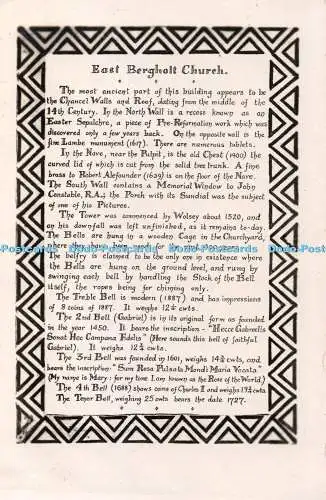 East Bergholt Church.
The most ancient part of this building appears to be
the Chancel Walls and Roof, dating from the middle of the
14th Century. In the North Wall is a recess known as an
Easter Sepulchre, a piece of Pre-Reformation work which was
discovered only a few years back. On the opposite wall is the
fine Lambe monument (1617). There are numerous tablets.
In the Nave, near the Pulpit, is the old Chest (1400) the
curved lid of which is cut from the solid tree trunk. A fine
brass to Robert Alefounder (1639) is on the floor of the Nave.
The South Wall contains a Memorial Window to John
Constable, R.A.; the Porch with its Sundial was the subject
of one of his Pictures.
The Tower was commenced by Wolsey about 1520, and
on his downfall was left unfinished, as it remains to-day.
The Bells are hung in a wooden Cage in the Churchyard,
where they have been used for
The belfry is claimed to be the only one in existence where
the Bells are hung on the ground level, and rung by
swinging each bell by handling the Stock of the Bell
itself, the ropes being for chiming only.
The Treble Bell is modern (1887) and has impressions
of 8 coins of 1887. It weighs 12¼ cwts.
The 2nd Bell (Gabriel) is in its original form as founded
in the year 1450. It bears the inscription - "Hecce Gabrielis
Sonat Hec Campana Fidelis" (Here sounds this bell of faithful
Gabriel). It weighs 12 cwts.
The 3rd Bell was founded in 1601, weighs 14¾ cwts, and
bears the inscription: "Sum Rosa Pulsata Mondi Maria Vcata"
(My name is Mary: for my time I am known as the Rose of the World)
The 4th Bell (1688) shows coins of Charles II and weighs 19¼ cwts.
The Tenor Bell, weighing 25 cwts bears the date 1727.